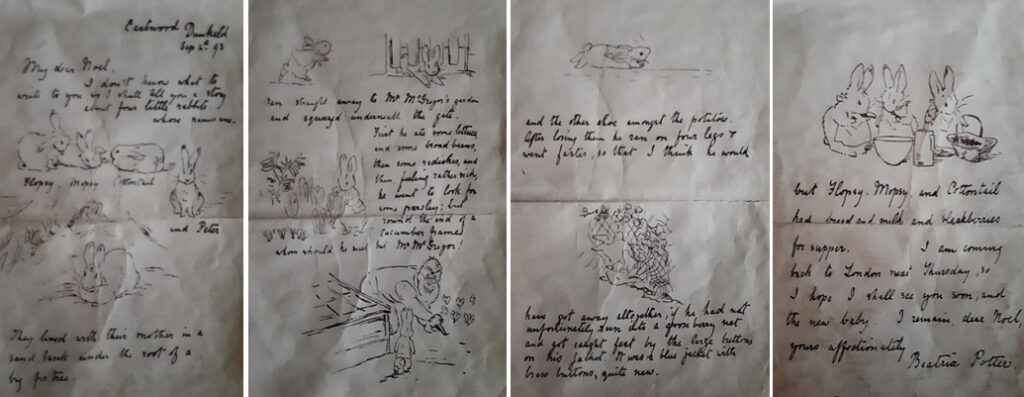 Eastwood Dunkeld
Sep 4th 93
My dear Noel,
I don't know what to
write to you so I shall tell you a story
about four little rabbits
whose names were
Flopsy, Mopsy Cottontail
and Peter
They lived with their mother in a
sand bank under the root of a
big fir tree.
ran straight away to Mr McGregor's garden
and squeezed underneath the gate.
First he ate some lettuce,
and some broad beans,
then some radishes, and
then, feeling rather sick,
he went to look for
some parsley; but
round the end of a
cucumber frame
whom should he meet but Mr McGregor!
and the other shoe amongst the potatoes.
After losing them he ran on four legs &
went faster, so that I think he would
have got away altogether, if he had not
unfortunately run into a gooseberry net
and got caught fast by the large buttons
on his jacket. It was a blue jacket with
brass buttons, quite new.
but Flopsy, Mopsy and Cottontail
had bread and milk and blackberries
for supper. I am coming
back to London next Thursday, so
I hope I shall see you soon, and
the new baby. I remain, dear Noel,
yours affectionately
Beatrix Potter.